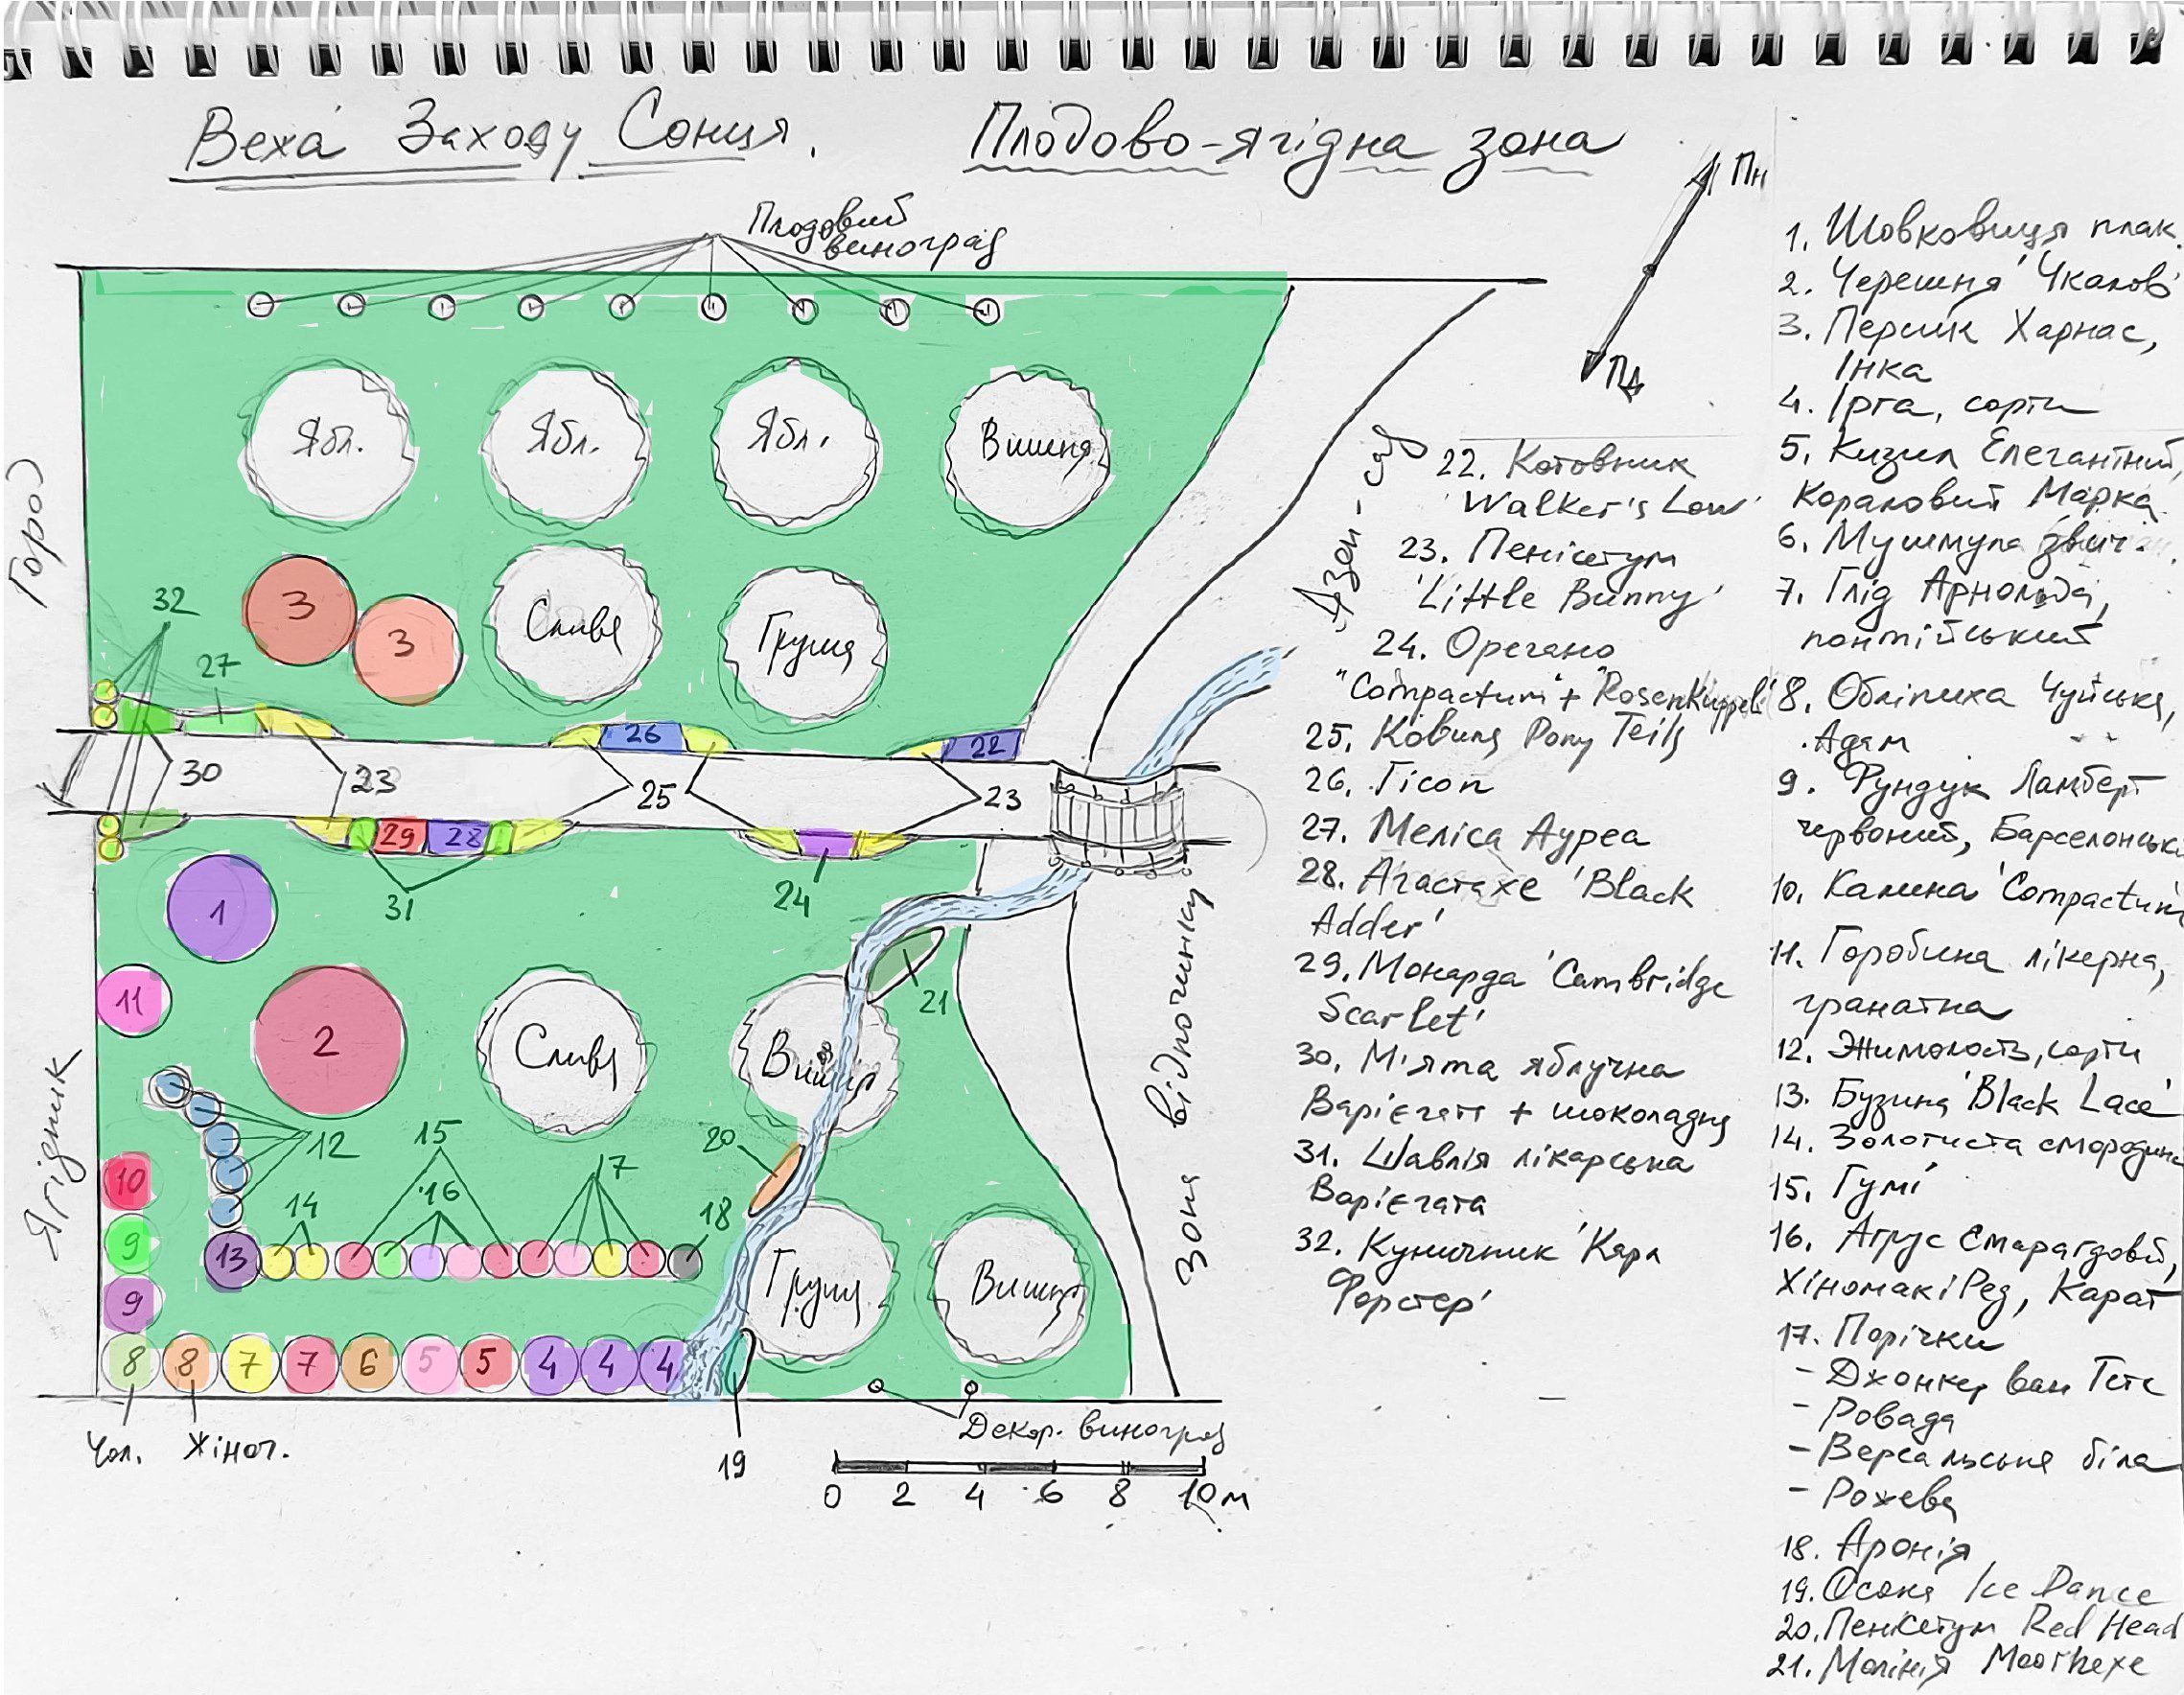 Веха Заходу Сонця. Плодово-ягідна зона
Пн
Пд
Плодовий
виноград
Ябл. Ябл. Ябл. Вишня
Город
3 3 Слива Груша
32
27
26 22
30 23 25 23
29 28
31 24
Дзен-сад
1
11 2 Слива Вишня 21
Ягідник
12 15 20
10 14 16 17 18
9 13
9 Груша Вишня
8 8 7 7 6 5 5 4 4 4
Зона відпочинку
Чол. Жіноч. 19 Декор. виноград
0 2 4 6 8 10 м
22. Котовник
'Walker's Low'
23. Пенісетум
'Little Bunny'
24. Орегано
"Compactum" + "Rosenkuppel"
25. Ковила Pony Teils
26. Гісоп
27. Меліса Ауреа
28. Агастахе 'Black
Adder'
29. Монарда 'Cambridge
Scarlet'
30. М'ята яблучна
Варієгата + шоколадна
31. Шавлія лікарська
Варієгата
32. Куничник 'Карл
Форстер'
1. Шовковиця плак.
2. Черешня 'Чкалов'
3. Персик Харнас,
Інка
4. Ірга, сорти
5. Кизил Елегантний,
Кораловий Марка
6. Мушмула звич.
7. Глід Арнольда,
понтійський
8. Обліпиха Чуйська,
Адам
9. Фундук Ламберт
червоний, Барселонськи
10. Калина 'Compactum'
11. Горобина лікерна,
гранатна
12. Жимолость, сорти
13. Бузина 'Black Lace'
14. Золотиста смородина
15. Гумі
16. Агрус Смарагдовий,
Хіномакі Ред, Карат
17. Порічки
- Джонкер ван Тетс
- Ровада
- Версальська біла
- Рожева
18. Аронія
19. Осока Ice Dance
20. Пенісетум Red Head
21. Молінія Moorhexe